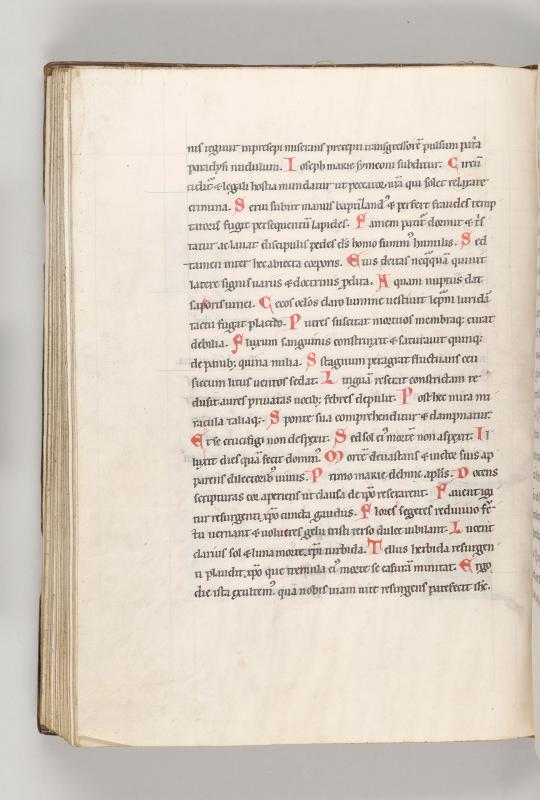 nis tegitur in presepi miserans precepti transgressorē pulsum patria
paradysi nudulum. Ioseph marie symeoni subditur. Circū
cidit᷒ & legali hostia mundatur ut peccator nr̄a qui solet relaxare
crimina. Serui subiit manus baptizand᷒ & perfert fraudes temp
tatoris fugit persequentū lapides. Famem patit᷒ dormit & tris
tatur ac lauat discipulis pedes ds̄ homo summ᷒ humilis. Sed
tamen inter hec abiecta corporis. Eius deitas neq̄quā quiuit
latere signis uariis & doctrinis prodita. Aquam nuptiis dat
saporis uinei. Cecos oc̄los claro lumine uestiuit lep̄m luridā
tactu fugat placido. Putres suscitat mortuos membraq; curat
debilia. Fluxum sanguinis constrinxit & saturauit quinq;
de panib; quina milia. Stagnum peragrat fluctuans ceu
siccum litus uentos sedat. Linguā reserat constrictam re
clusit aures priuatas uocib; febres depulit. Post hec mira mi
racula taliaq;. Sponte sua comprehenditur & damnatur.
Et se crucifigi non despexit. Sed sol ei᷒ mortē non aspexit. Il
luxit dies quā fecit domin᷒. Mortē deuastans & uictor suis ap
parens dilectorib᷒ uiuus. Primo marie dehinc apl̄is. Docens
scripturas cor aperiens ut clausa de ip̄o resērarent. Fauent igi
tur resurgenti xp̄o cuncta gaudiis. Flores segetes rediuiuo fruc
tu uernant & uolucres gelu tristi terso dulce iubilant. Lucent
clarius sol & luna morte xp̄i turbida. Tellus herbida resurgen
ti plaudit xp̄o que tremula ei᷒ morte se casurā minitat. Ergo
die ista exultem᷒ quā nobis uiam uite resurgens patefecit ihc̄.